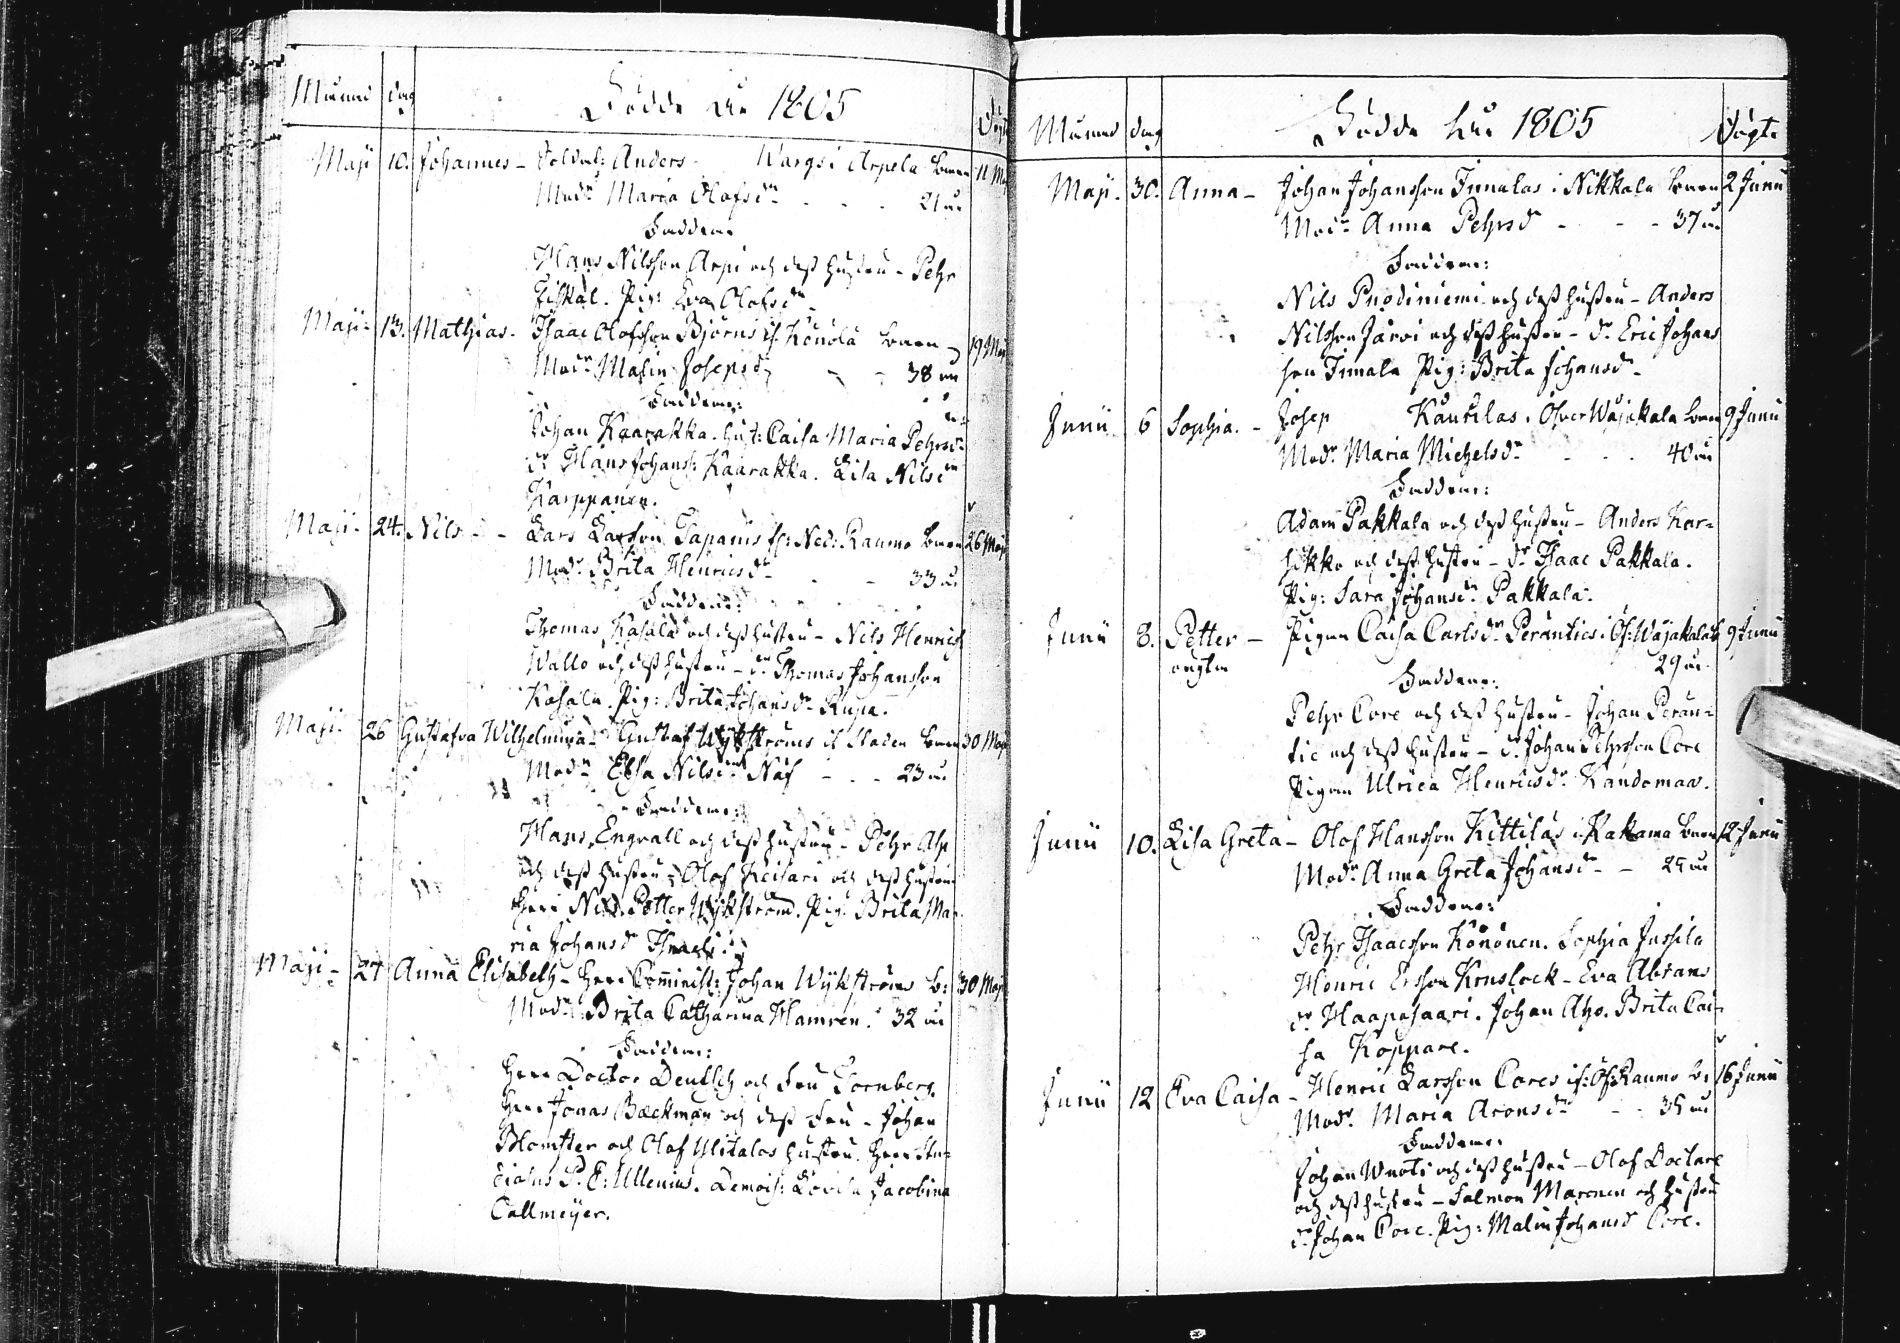 Månad dag Födde År 1805 Döpte
Maji 10. Johannes - Soldat: Anders Wargs i Arpela barn 11 Maj
Modr Maria Olofsdr - - - 21 år
Faddrar
Hans Nilsson Arpi och dess hustru - Pehr
Fiskal. Pig: Eva Olofsdr
Maji 13. Mathias - Isaac Olofsson Björns if. Könölä barn 19 Maj
Modr Malin Josepsdr - - 38 år
Faddrar:
Johan Kaarakka. hust: Caisa Maria Pehrsdr
dr Hans Johanss: Kaarakka. Lisa Nilsdr
Karppanen.
Maji 24. Nils - - Lars Larsson Tapanis if: Ned: Raumo barn 26 Maji
Modr Brita Henricsdr - - 33 år
Faddrar:
Thomas Kasala och dess hustru - Nils Henrics
Wallo och dess hustru - dr Thomas Johansson
Kasala. Pig: Brita Johansdr Rupa.
Maji 26 Gustafva Wilhelmina - Gustaf Wykströms if Staden barn 30 Maji
Modr Elsa Nilsdr Näf - - - 23 år
Faddrar:
Hans Engvall och dess hustru - Pehr Alp
och dess hustru - Olof Keisari och dess hustru
Herr Nils Petter Wykström. Pig: Brita Ma-
ria Johansdr
Maji - 27 Anna Elisabeth - Herr Comminist: Johan Wykströms b: 30 Maj
Modr Brita Catharina Hamren. 32 år
Faddrar:
Herr Doctor Deutsch och Fru Tornberg.
Herr Jonas Bæckman och dess Fru - Johan
Blomster och Olof Ylitalos hustru. Herr Stu-
diosus P. E: Ullenius. Demois: Lovisa Jacobina
Callmeyer.
Månad dag Födde År 1805 Döpte
Maji. 30. Anna - Johan Johansson Immalas i Nikkala barn 2 Junii
Modr Anna Pehrsdr - - - 37 år
Faddrar:
Nils Puodiniemi och dess hustru - Anders
Nilsson Järvi och dess hustru - dr Eric Johans
son Immala Pig: Brita Johansdr -
Junii 6 Sophia. - Josep Kautilas i Öfver Wojakala barn 9 Junii
Modr Maria Michelsdr - - - 40 år
Faddrar:
Adam Pakkala och dess hustru - Anders Kor-
hikko och dess hustru - dr Isaac Pakkala.
Pig: Sara Johansdr Pakkala.
Junii 8. Petter - Pigan Caisa Carlsdr Peranties i Öf: Wojakala b 9 Junii
oägta 29 år
Faddrar:
Pehr Core och dess hustru - Johan Peran-
tie och dess hustru - dr Johan Pehrsson Core
Pigan Ulrica Henricsdr Kandomaa.
Junii 10. Lisa Greta - Olof Hansson Kittilas i Kakama barn 12 Junii
Modr Anna Greta Johansdr - - 29 år
Faddrar:
Pehr Isaacsson Könönen. Sophia Jussila
Henric Ersson Kruslock - Eva Abrams
dr Haapasaari. Johan Aho. Brita Cai-
sa Koppare.
Junii 12 Eva Caisa - Henric Larsson Cores if: Öf: Raumo b: 16 Junii
Modr Maria Aronsdr - - 35 år
Faddrar:
Johan Wuoti och dess hustru - Olof Doctare
och dess hustru - Salmon Maronen och hustru
dr Johan Core. Pig: Malin Johansdr Core.